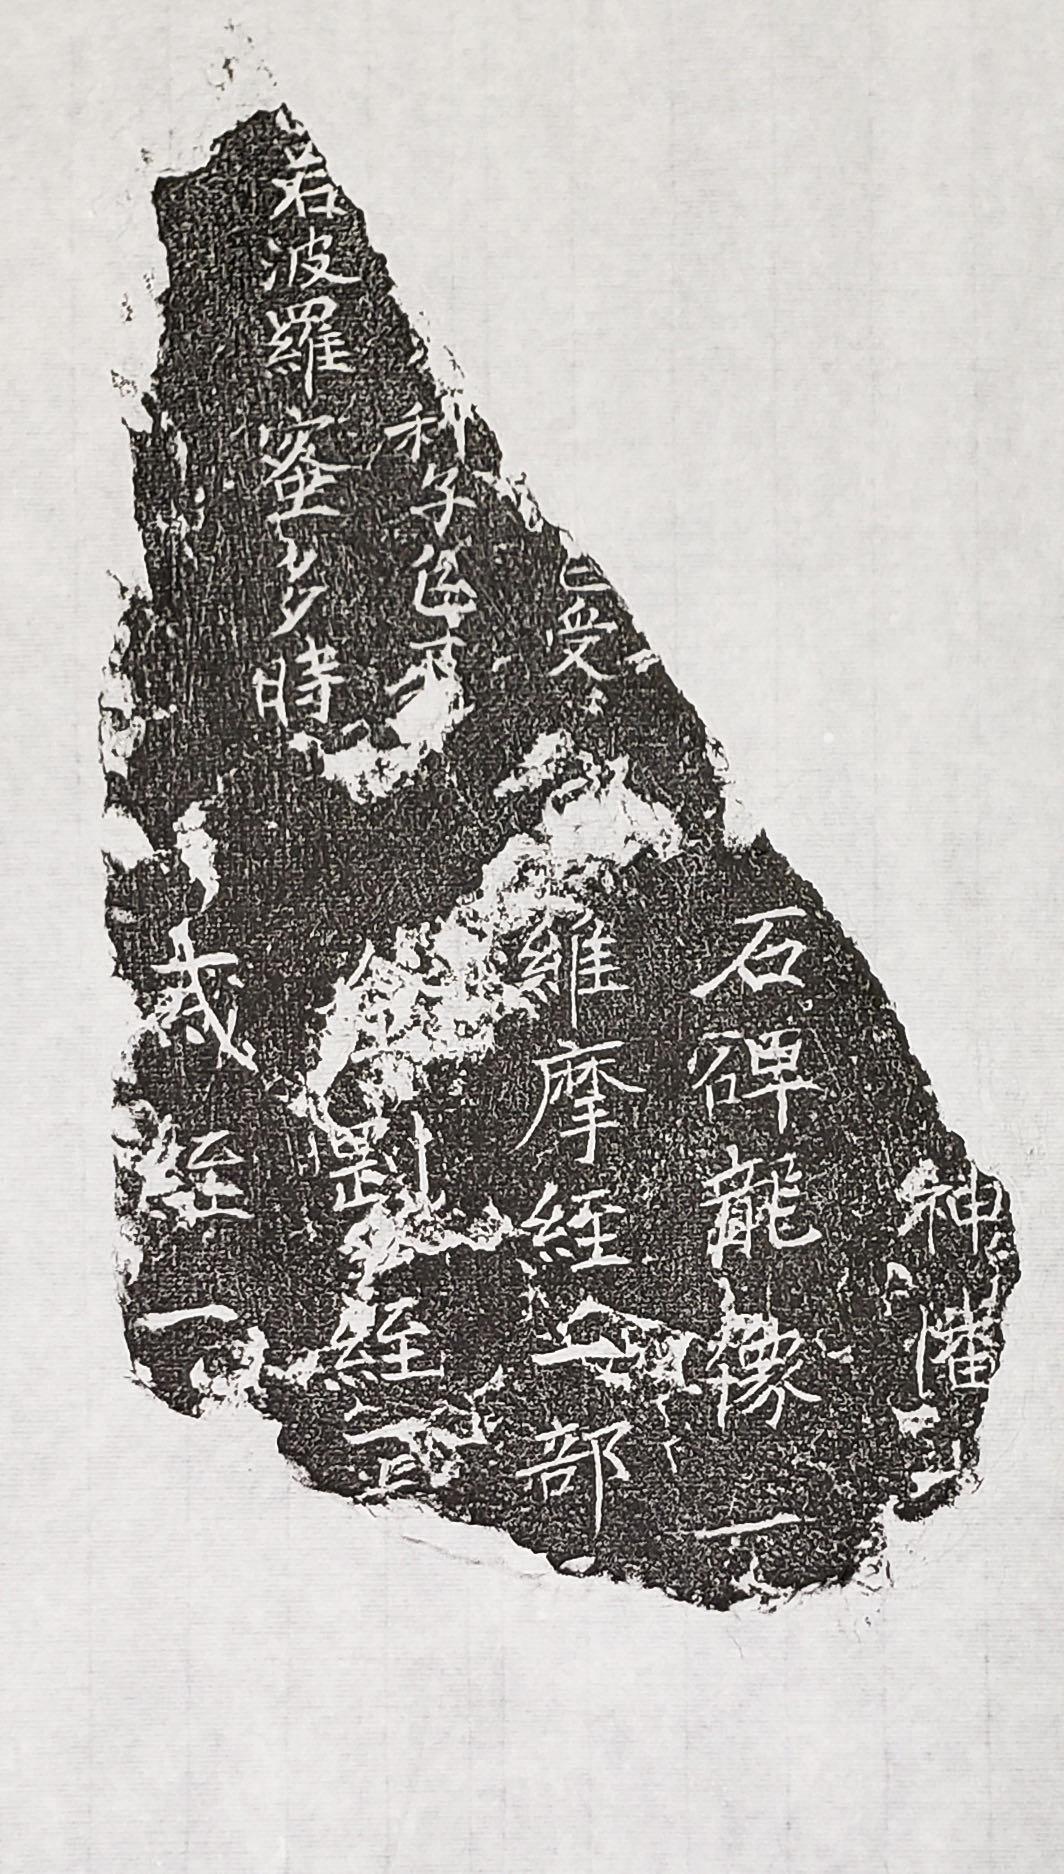 受
利子色不
若波羅蜜多時
神
石碑龍像一
維摩經部
金剛經
戎經一